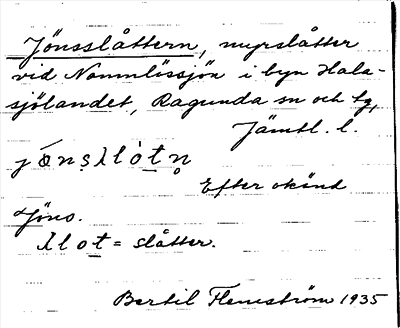 Jönsslåttern, myrslåtter
vid Namnlössjön i byn Hala-
sjölandet, Ragunda sn och tg,
Jämtl. l.
Efter okänd
Jöns.
λlot = slåtter.
Bertil Flemström 1935